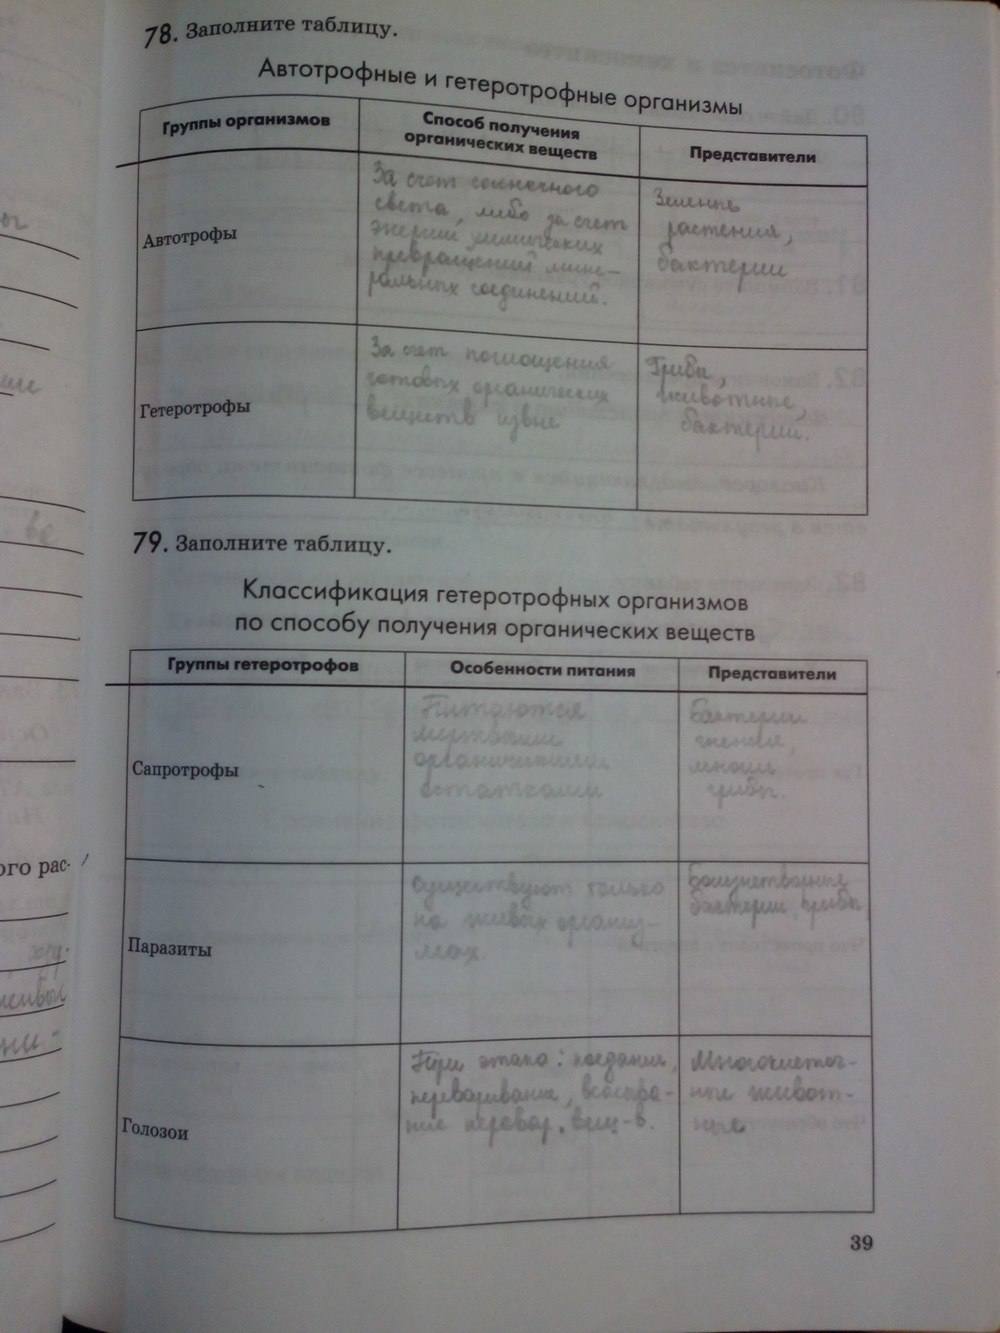 78. Заполните таблицу.
Автотрофные и гетеротрофные организмы
Группы организмов
Способ получения
органических веществ
Представители
Автотрофы
За счет солнечного
света, либо за счет
энергии химических
превращений мине-
ральных соединений.
Зеленые
растения,
бактерии
Гетеротрофы
За счет поглощения
готовых органических
веществ извне
Грибы,
животные,
бактерии.
79. Заполните таблицу.
Классификация гетеротрофных организмов
по способу получения органических веществ
Группы гетеротрофов
Особенности питания
Представители
Сапротрофы
Питаются
мертвыми
органическими
остатками
Бактерии
гниения,
многие
грибы.
Паразиты
Существуют только
на живых организ-
мах.
Болезнетворные
бактерии, грибы
Голозои
Три этапа: поедание,
переваривание, всасыва-
ние перевар. вещ-в.
Многоклеточ-
ные живот-
ные
ого рас-
39